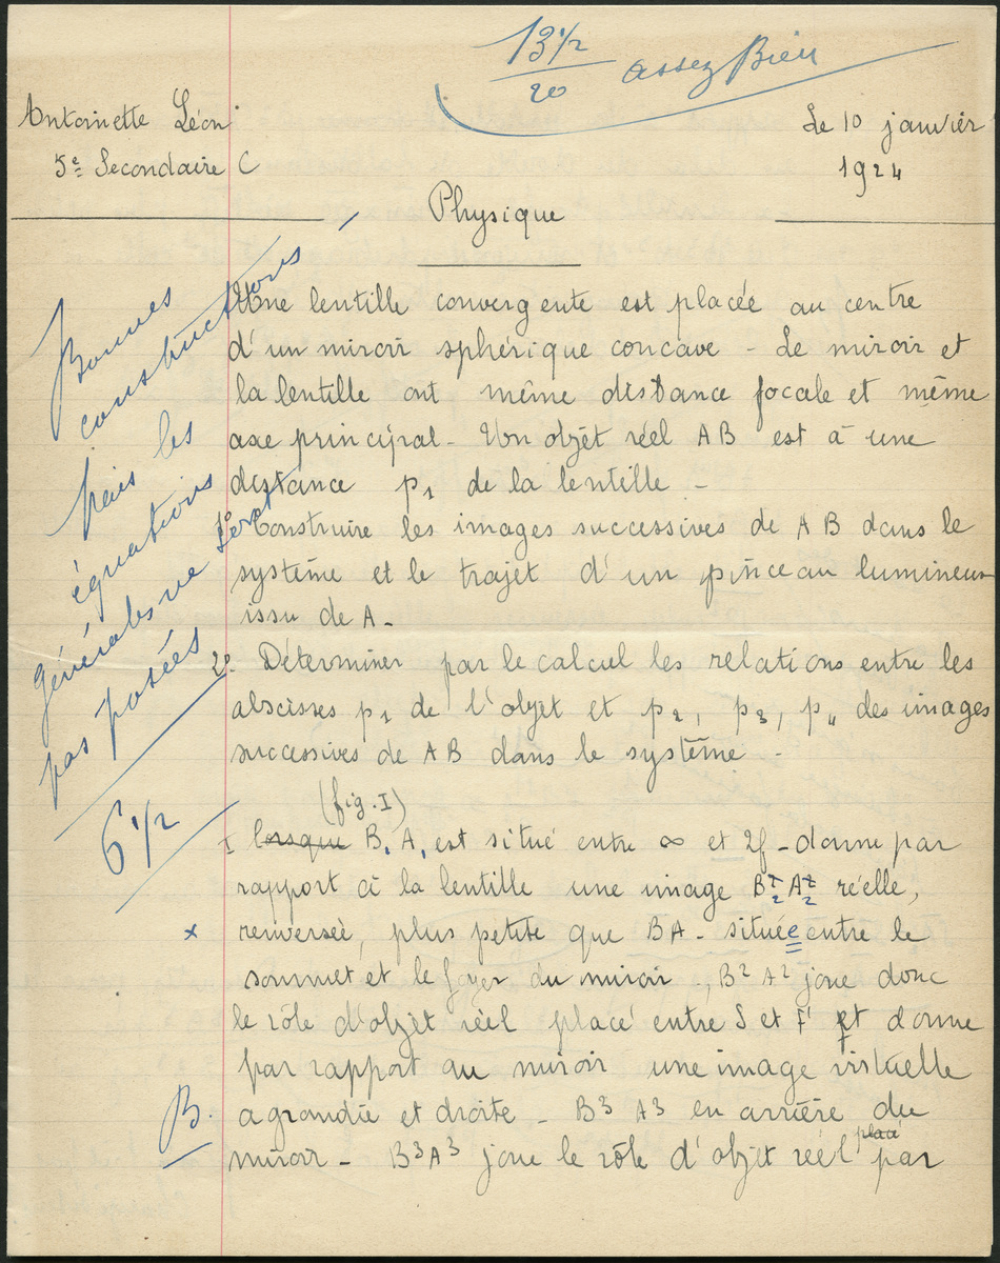 13 1/2
20
Assez Bien
Antoinette Léon
5e Secondaire C
Le 10 janvier
1924
Physique
Bonnes
constructions
mais les
équations
générales ne sont
pas posées
6 1/2
Une lentille convergente est placée au centre
d'un miroir sphérique concave - Le miroir et
la lentille ont même distance focale et même
axe principal - Un objet réel AB est à une
distance p1 de la lentille -
1° Construire les images successives de AB dans le
système et le trajet d'un pinceau lumineux
issu de A -
2° Déterminer par le calcul les relations entre les
abscisses p1 de l'objet et p2, p3, p4 des images
successives de AB dans le système -
(fig. I)
1 lorsque B1 A1 est situé entre ∞ et 2f - donne par
rapport à la lentille une image B2 A2 réelle,
x
renversée, plus petite que BA - située entre le
sommet et le foyer du miroir -, B2 A2 joue donc
le rôle d'objet réel placé entre S et F et donne
par rapport au miroir une image virtuelle
B.
agrandie et droite - B3 A3 en arrière du
miroir - B3A3 joue le rôle d'objet réel placé par